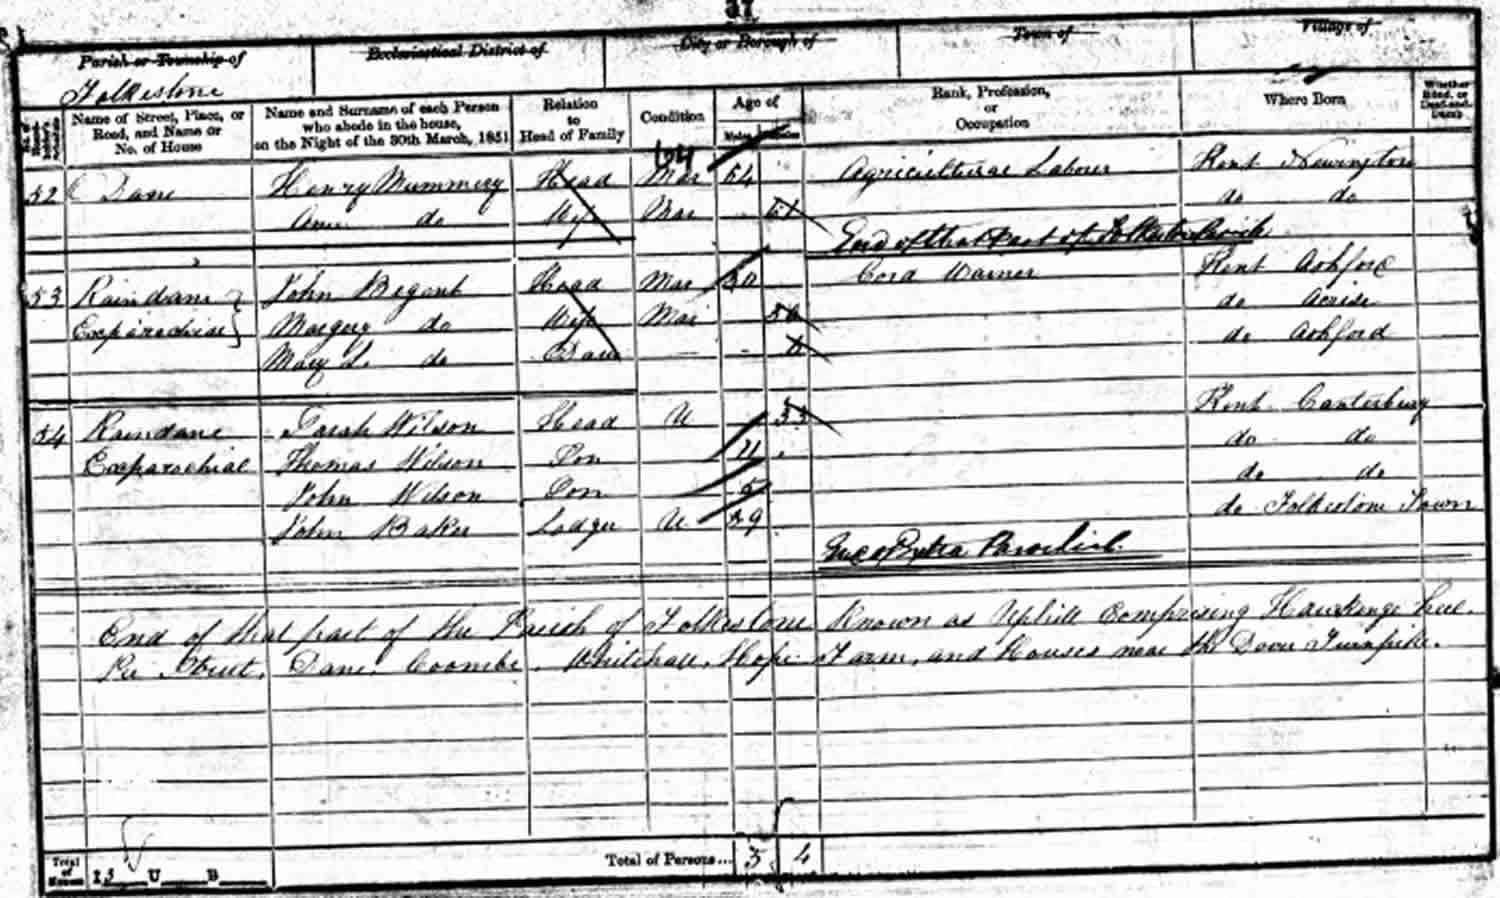 37
Parish or Township of Ecclesiastical District of City or Borough of Town of Village of
Folkestone
Name of Street, Place, or Road, and Name or No. of House
Name and Surname of each Person who abode in the house, on the Night of the 30th March, 1851
Relation to Head of Family
Condition
Age of
Males
Rank, Profession, or Occupation
Where Born
Whether Blind, or Deaf-and-Dumb
52 Dane Henry Mummery Head Mar 54 Agricultural Labourer Kent Newington
Ann do Wife Mar 51 do do
End of that Part of Folkestone Parish
53 Raindane John Begent Head Mar 50 Kent Ashford
Exparochial Margery do Wife Mar do Acrise
Mary L. do Dau do Ashford
54 Raindane Sarah Wilson Head U 33 Kent Canterbury
Exparochial Thomas Wilson Son 11 do do
John Wilson Son 5 do do
John Baker Lodger U 39 do Folkestone Town
Extra Parochial
End of that part of the Parish of Folkestone Known as Uphill Comprising Hawkinge
Street, Dane, Coombe, Whitehall, Hope Farm, and Houses near the Dover Turnpike.
Total of Houses 13 U B Total of Persons... 5 4